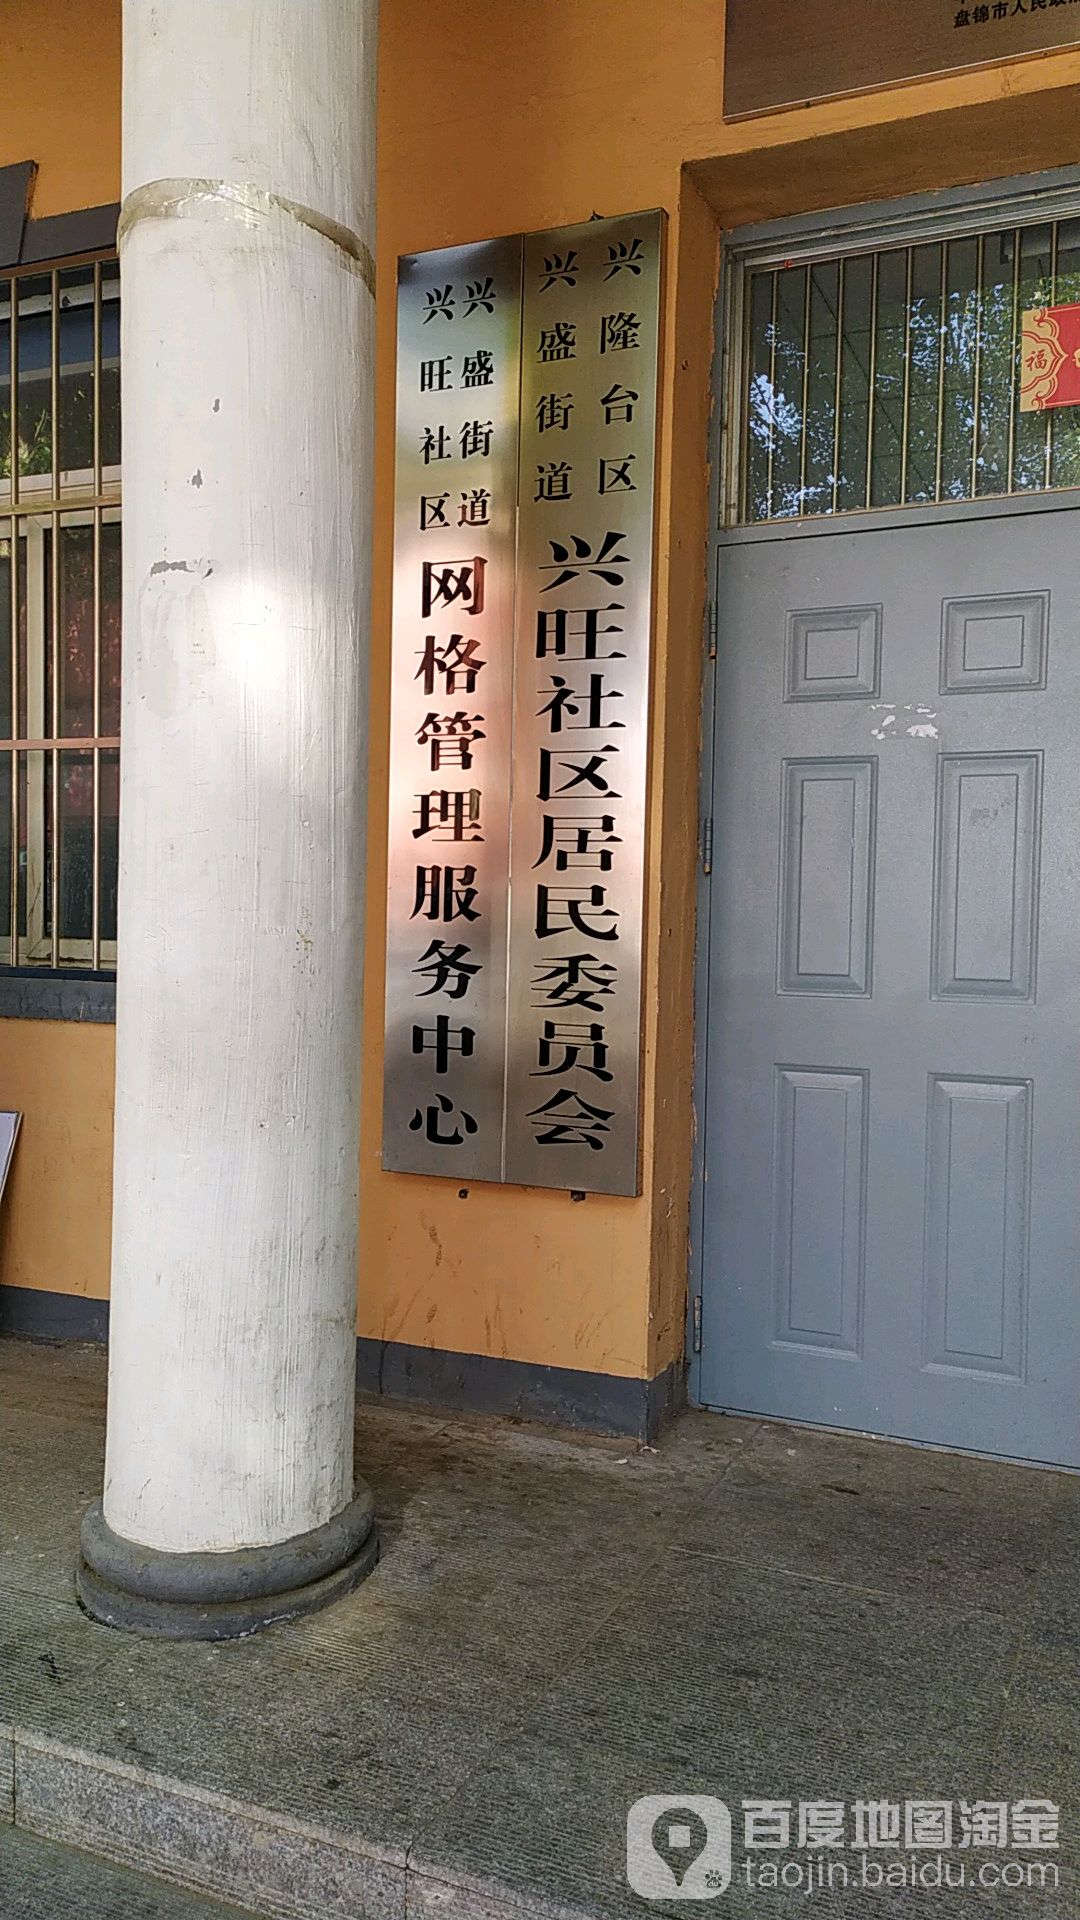 盘锦市人民政
福
兴隆台区
兴盛街道
兴旺社区居民委员会
兴盛街道
兴旺社区
网格管理服务中心
百度地图淘金
taojin.baidu.com